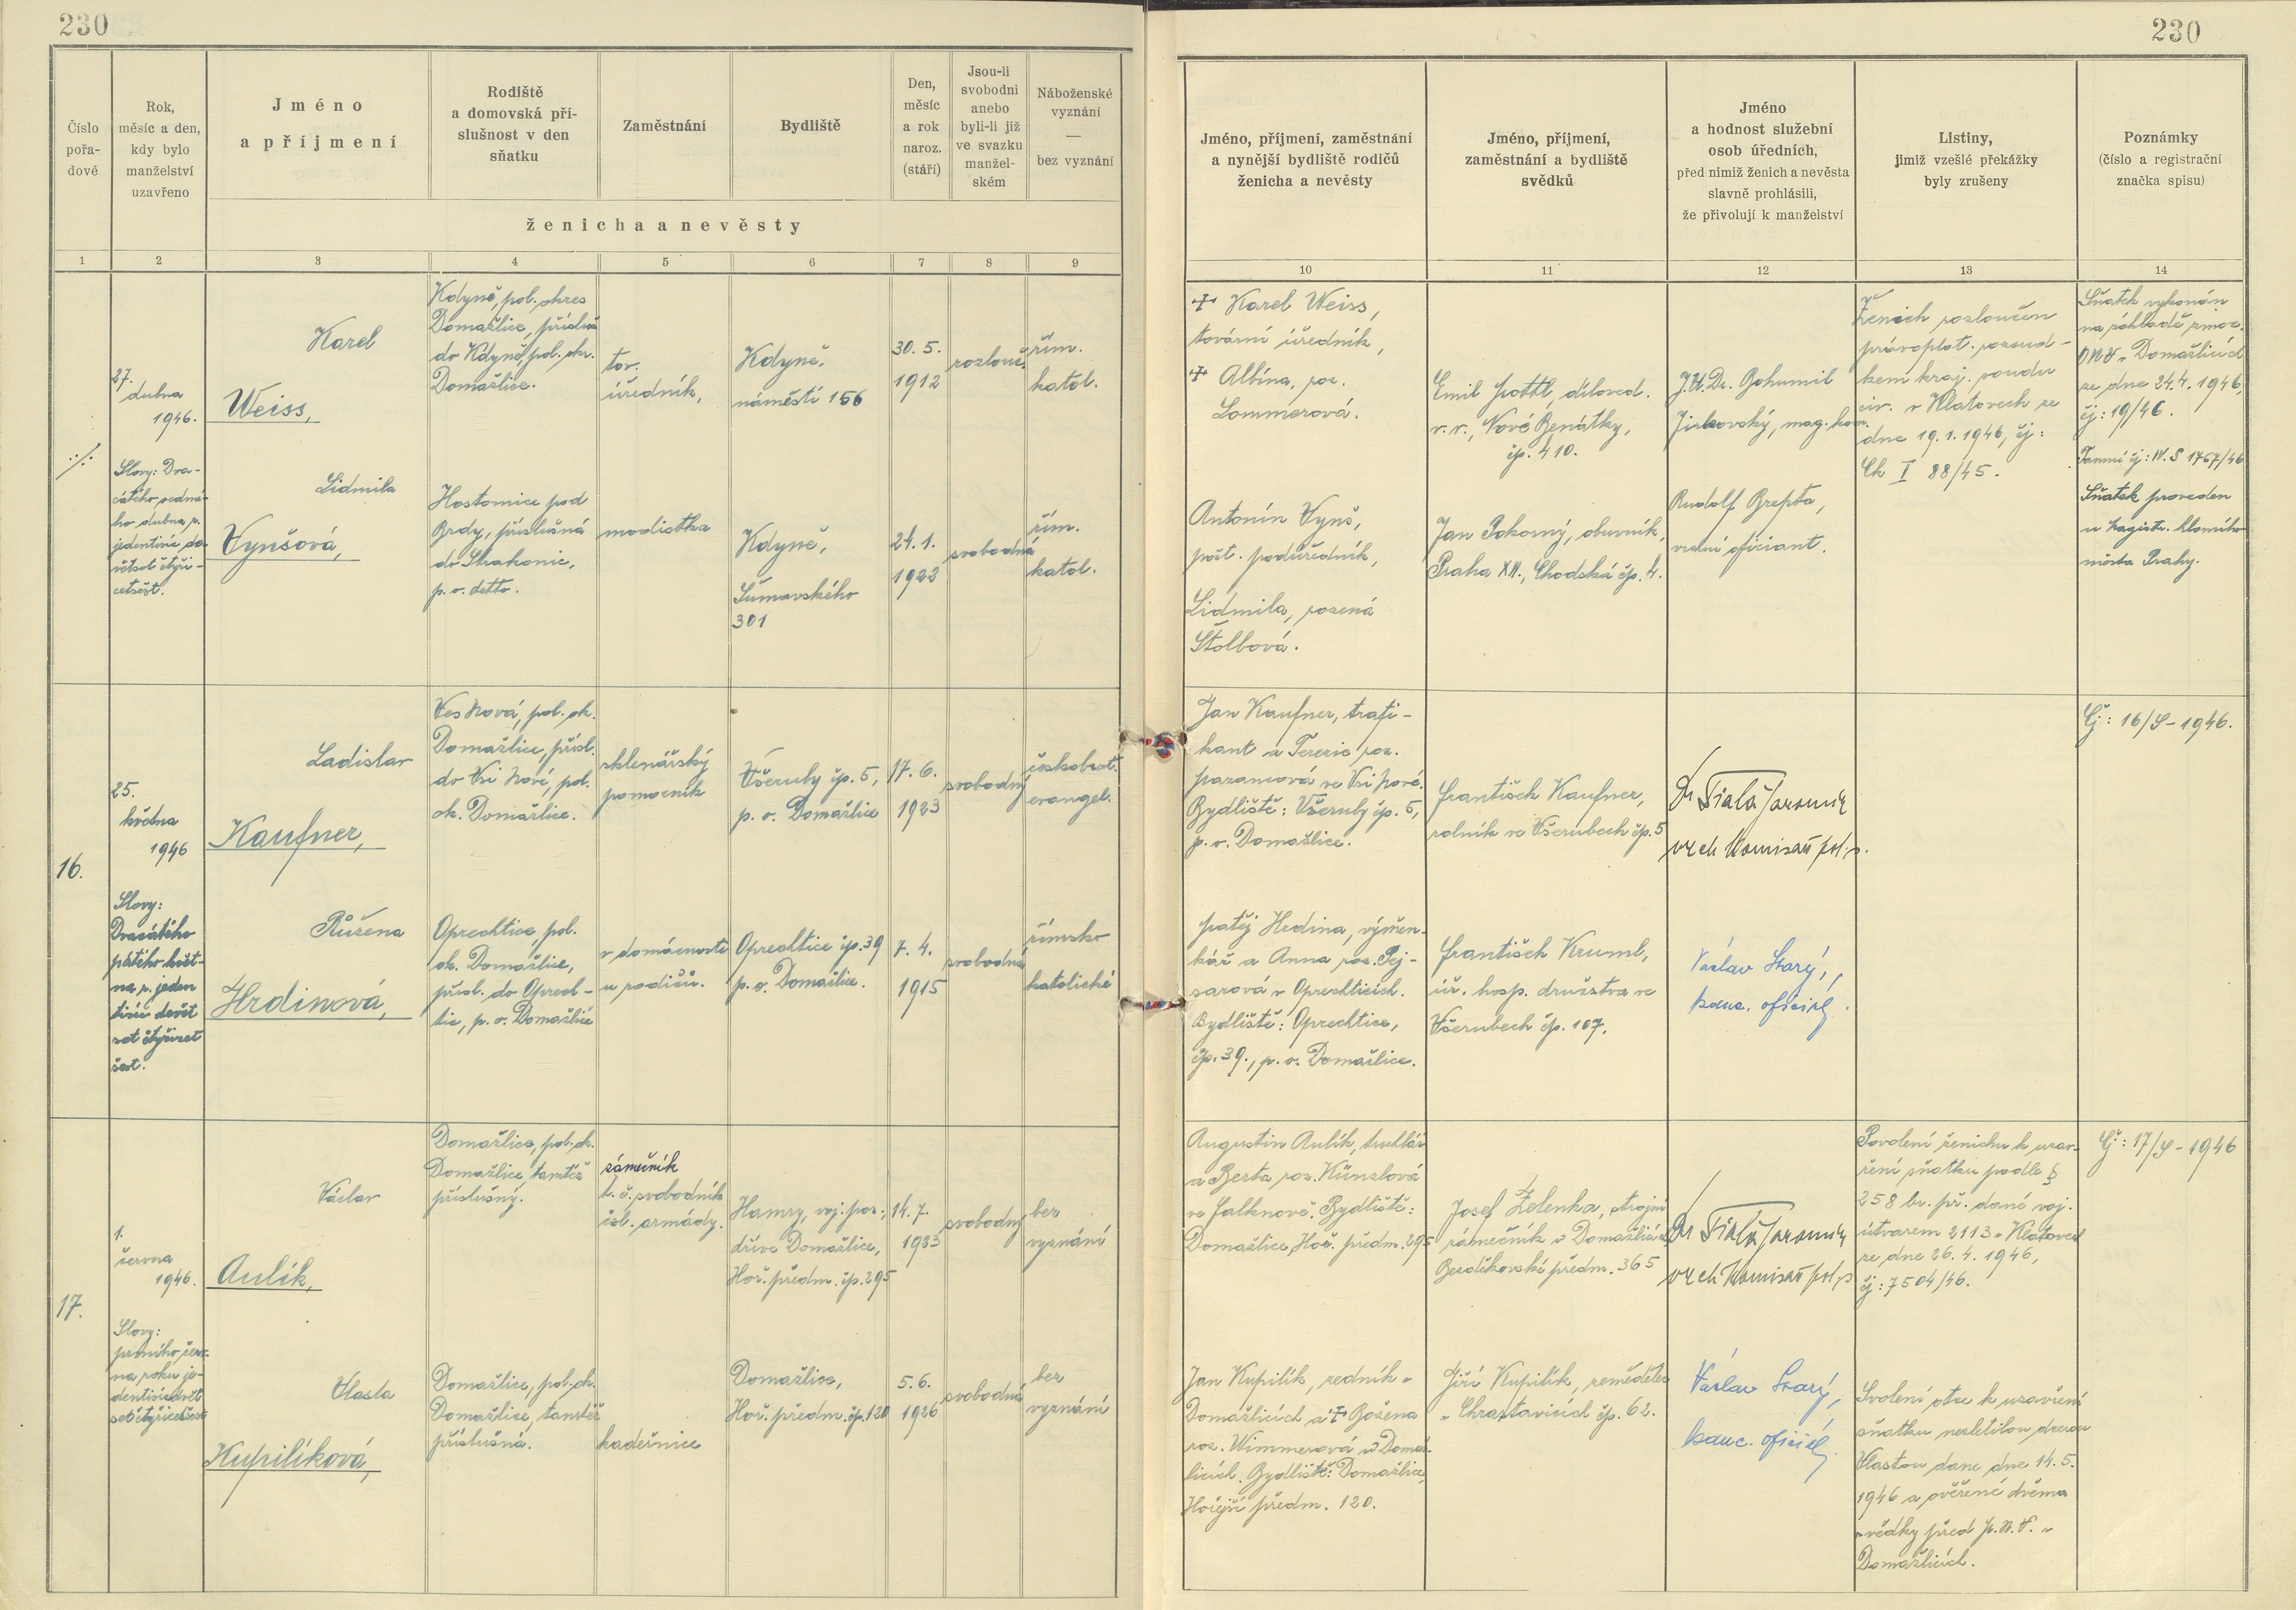 230
230
Číslo
pořa-
dové
Rok,
měsíc a den,
kdy bylo
manželství
uzavřeno
Jméno
a příjmení
Rodiště
a domovská pří-
slušnost v den
sňatku
Zaměstnání
Bydliště
Den,
měsíc
a rok
naroz.
(stáří)
Jsou-li
svobodni
anebo
byli-li již
ve svazku
manžel-
ském
Náboženské
vyznání
—
bez vyznání
ženicha a nevěsty
Jméno, příjmení, zaměstnání
a nynější bydliště rodičů
ženicha a nevěsty
Jméno, příjmení,
zaměstnání a bydliště
svědků
Jméno
a hodnost služební
osob úředních,
před nimiž ženich a nevěsta
slavně prohlásili,
že přivolují k manželství
Listiny,
jimiž vzešlé překážky
byly zrušeny
Poznámky
(číslo a registrační
značka spisu)
1 2 3 4 5 6 7 8 9
10 11 12 13 14
·/·
27.
dubna
1946.
Slovy: Dva-
cátého sedmé-
ho dubna r.
jedentisíc de-
větset čtyři-
cetšest.
Karel
Weiss,
Kdyně, pol. okres
Domažlice, přísluš.
do Kdyně, pol. okr.
Domažlice.
tov.
úředník,
Kdyně,
náměstí 156
30. 5.
1912
rozlouč.
řím.
katol.
Lidmila
Vynšová,
Hostomice pod
Brdy, příslušná
do Strakonic,
p. o. detto.
modistka
Kdyně,
Šumavského
301
24. 1.
1922
svobodná
řím.
katol.
+ Karel Weiss,
tovární úředník,
+ Albína, roz.
Lommerová.
Antonín Vynš,
pošt. podúředník,
Lidmila, rozená
Štolbová.
Emil Pottl, díloved.
v. v., Nové Benátky,
čp. 410.
Jan Pokorný, obuvník,
Praha XII., Chodská čp. 4.
J.U.Dr. Bohumil
Jirkovský, mag. kom.
Rudolf Brepta,
vrchní oficiant.
Ženich rozloučen
právoplat. rozsud-
kem kraj. soudu
civ. v Klatovech ze
dne 19. 1. 1946, čj:
Ck I 88/45.
Sňatek vykonán
na základě zmoc.
ONV v Domažlicích
ze dne 24. 4. 1946,
čj: 19/46.
Tamní čj: IV. S 1767/46
Sňatek proveden
u magistr. hlavního
města Prahy.
16.
25.
května
1946
Slovy:
Dvacátého
pátého květ-
na r. jeden
tisíc devět
set čtyřicet
šest.
Ladislav
Kaufner,
Ves Nová, pol. ok.
Domažlice, přísl.
do Vsi Nové, pol.
ok. Domažlice.
sklenářský
pomocník
Všeruby čp. 5,
p. o. Domažlice
17. 6.
1923
svobodný
českobrat.
evangel.
Růžena
Hrdinová,
Oprechtice, pol.
ok. Domažlice,
přísl. do Oprech-
tic, p. o. Domažlice
v domácnosti
u rodičů.
Oprechtice čp. 39
p. o. Domažlice.
7. 4.
1915
svobodná
římsko
katolické
Jan Kaufner, trafi-
kant a Terezie roz.
ve Vsi Nové.
Bydliště: Všeruby čp. 5,
p. o. Domažlice.
Matěj Hrdina, výměn-
kář a Anna roz. Pej-
sarová v Oprechticích.
Bydliště: Oprechtice,
čp. 39., p. o. Domažlice.
František Kaufner,
rolník ve Všerubech čp. 5
František Kruml,
úř. hosp. družstva ve
Všerubech čp. 107.
Dr Fiala Jaromír
vrch. komisař pol. s.
Václav Starý,
kanc. oficiál.
Čj: 16/S-1946.
17.
1.
června
1946.
Slovy:
prvního červ-
na roku je-
dentisícdevět
setčtyřicetšest
Václav
Aulík,
Domažlice, pol. ok.
Domažlice, tamtéž
příslušný.
zámečník
t. č. svobodník
čsl. armády.
Hamry, voj. pos.,
dříve Domažlice,
Hoř. předm. čp. 295
14. 7.
1923
svobodný
bez
vyznání
Vlasta
Kupilíková,
Domažlice, pol. ok.
Domažlice, tamtéž
příslušná.
kadeřnice
Domažlice,
Hoř. předm. čp. 120
5. 6.
1926
svobodná
bez
vyznání
Augustin Aulík, truhlář
a Berta roz. Künzlová
ve Falknově. Bydliště:
Domažlice, Hoř. předm. 295
Jan Kupilík, zedník v
Domažlicích a + Božena
roz. Wimmerová v Domaž-
licích. Bydliště: Domažlice,
Hořejší předm. 120.
Josef Zelenka, strojní
zámečník v Domažlicích,
Bezděkovské předm. 365
Jiří Kupilík, zemědělec
v Chrastavicích čp. 62.
Dr Fiala Jaromír
vrch. komisař pol. s.
Václav Starý,
kanc. oficiál.
Povolení ženichu k uzav-
ření sňatku podle §
258 br. př. dané voj.
útvarem 2113 v Klatovech
ze dne 26. 4. 1946,
čj: 7504/46.
Svolení otce k uzavření
sňatku nezletilou dcerou
Vlastou dané dne 14. 5.
1946 a ověřené dvěma
svědky před M.N.V. v
Domažlicích.
Čj: 17/S-1946